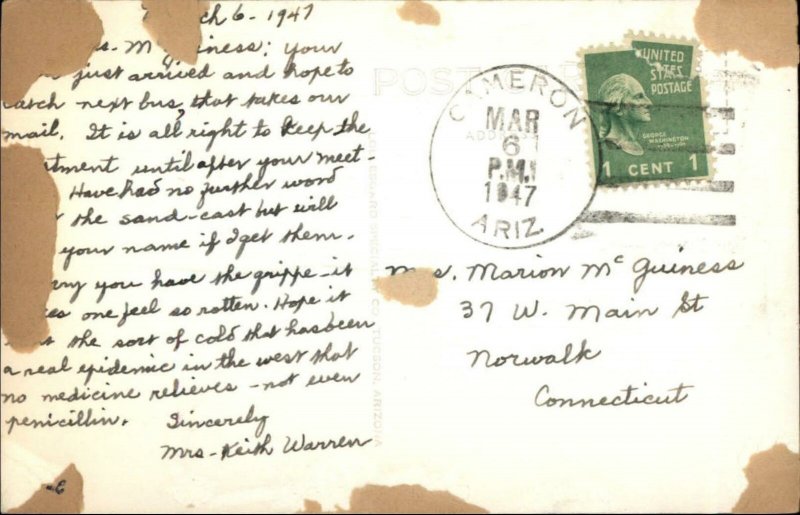 ch 6 - 1947
s. McGuiness: your
just arrived and hope to
catch next bus, that takes our
mail. It is all right to keep the
tment until after your meet-
Have had no further word
the sand-cast but will
your name if I get them.
rry you have the grippe - it
es one feel so rotten. Hope it
the sort of cold that has been
a real epidemic in the west that
no medicine relieves - not even
penicillin. Sincerely
Mrs - Keith Warren
POST
CAMERON
MAR
6
P.M.
1947
ARIZ
UNITED
STATES
POSTAGE
GEORGE
WASHINGTON
1 CENT 1
Mrs. Marion McGuiness
37 W. Main St
Norwalk
Connecticut
TUCSON, ARIZONA